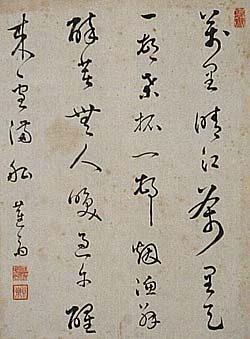 萬里晴江萬里天
一村桑柘一村烟漁翁
醉著無人喚過午醒
來雪滿船